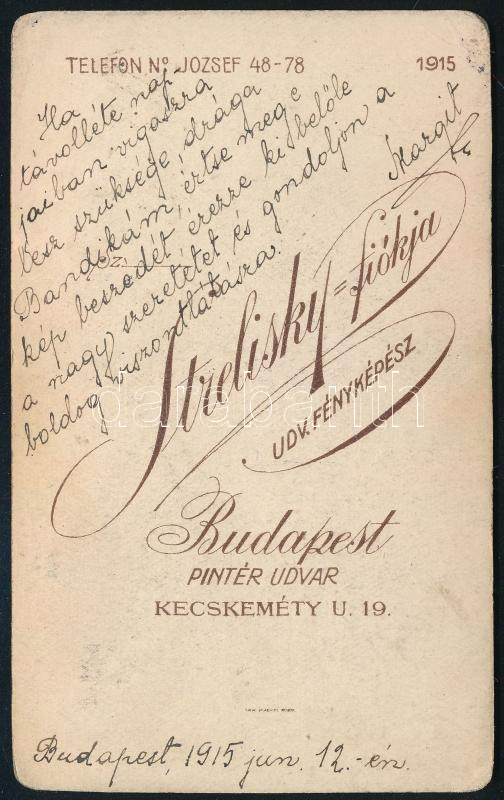 TELEFON Nº JÓZSEF 48-78 1915
Ha
távolléte nap-
jaiban vigaszra
lesz szüksége, drága
Bandikám, értse meg e
kép beszédét, érezze ki belőle
a nagy szeretetet és gondoljon a
boldog viszontlátásra.
Margit
Strelisky=fiókja
UDV. FÉNYKÉPÉSZ
darabanth
Budapest
PINTÉR UDVAR
KECSKEMÉTY U. 19.
Budapest, 1915 jun. 12.-én.